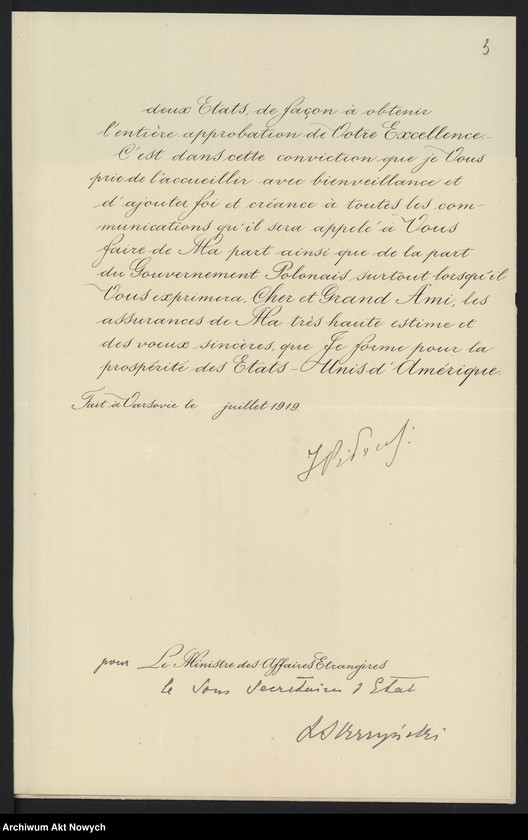 3
deux Etats, de façon à obtenir
l'entière approbation de Votre Excellence.-
C'est dans cette conviction que je Vous
prie de l'accueillir avec bienveillance et
d'ajouter foi et créance à toutes les com-
munications qu'il sera appelé à Vous
faire de Ma part ainsi que de la part
du Gouvernement Polonais, surtout lorsqu'il
Vous exprimera, Cher et Grand Ami, les
assurances de Ma très haute estime et
des voeux sincères, que Je forme pour la
prospérité des Etats-Unis d'Amérique.
Fait à Varsovie le juillet 1919.
pour Le Ministre des Affaires Etrangères
le Sous Secretaire d'Etat
Skrzyński
Archiwum Akt Nowych